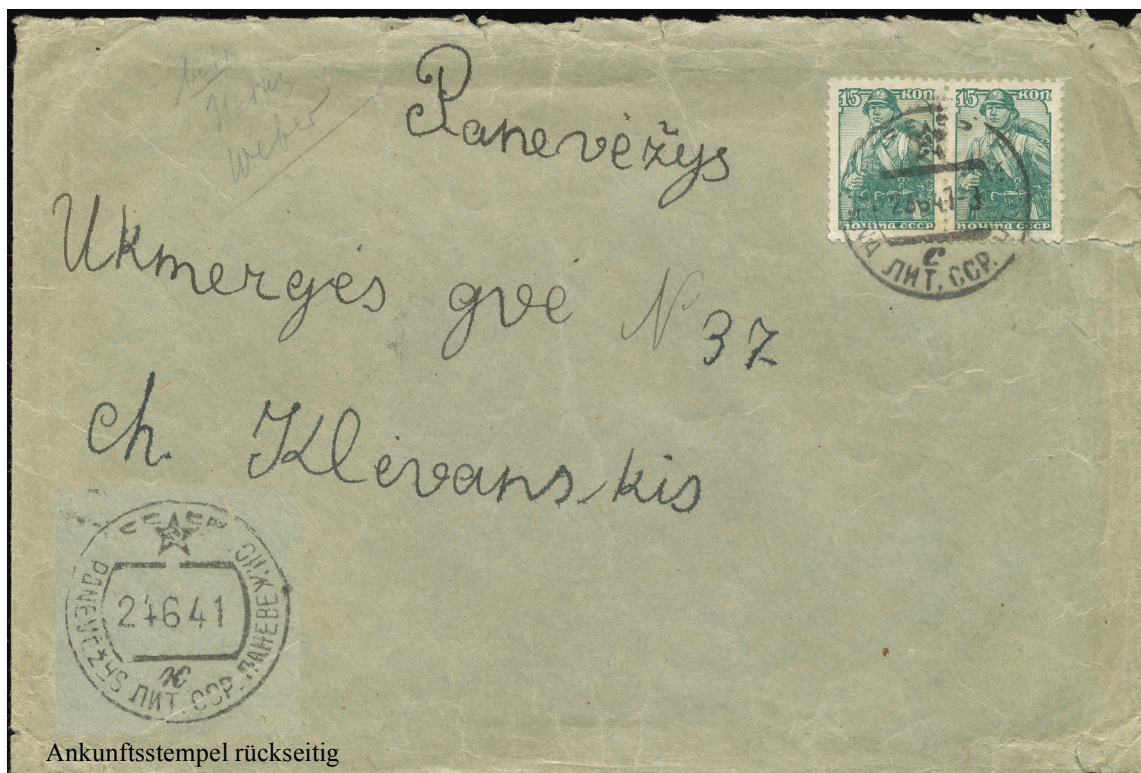 Panevėžys
15 КОП 15 КОП
ПОЧТА СССР ПОЧТА СССР
ЛИТ. ССР.
с
Ukmergės gvė N 37
Ch. Klevanskis
weber
СССР
PANEVĖŽYS ЛИТ. ССР. ПАНЕВЕЖИС
24 6 41
ж
Ankunftsstempel rückseitig